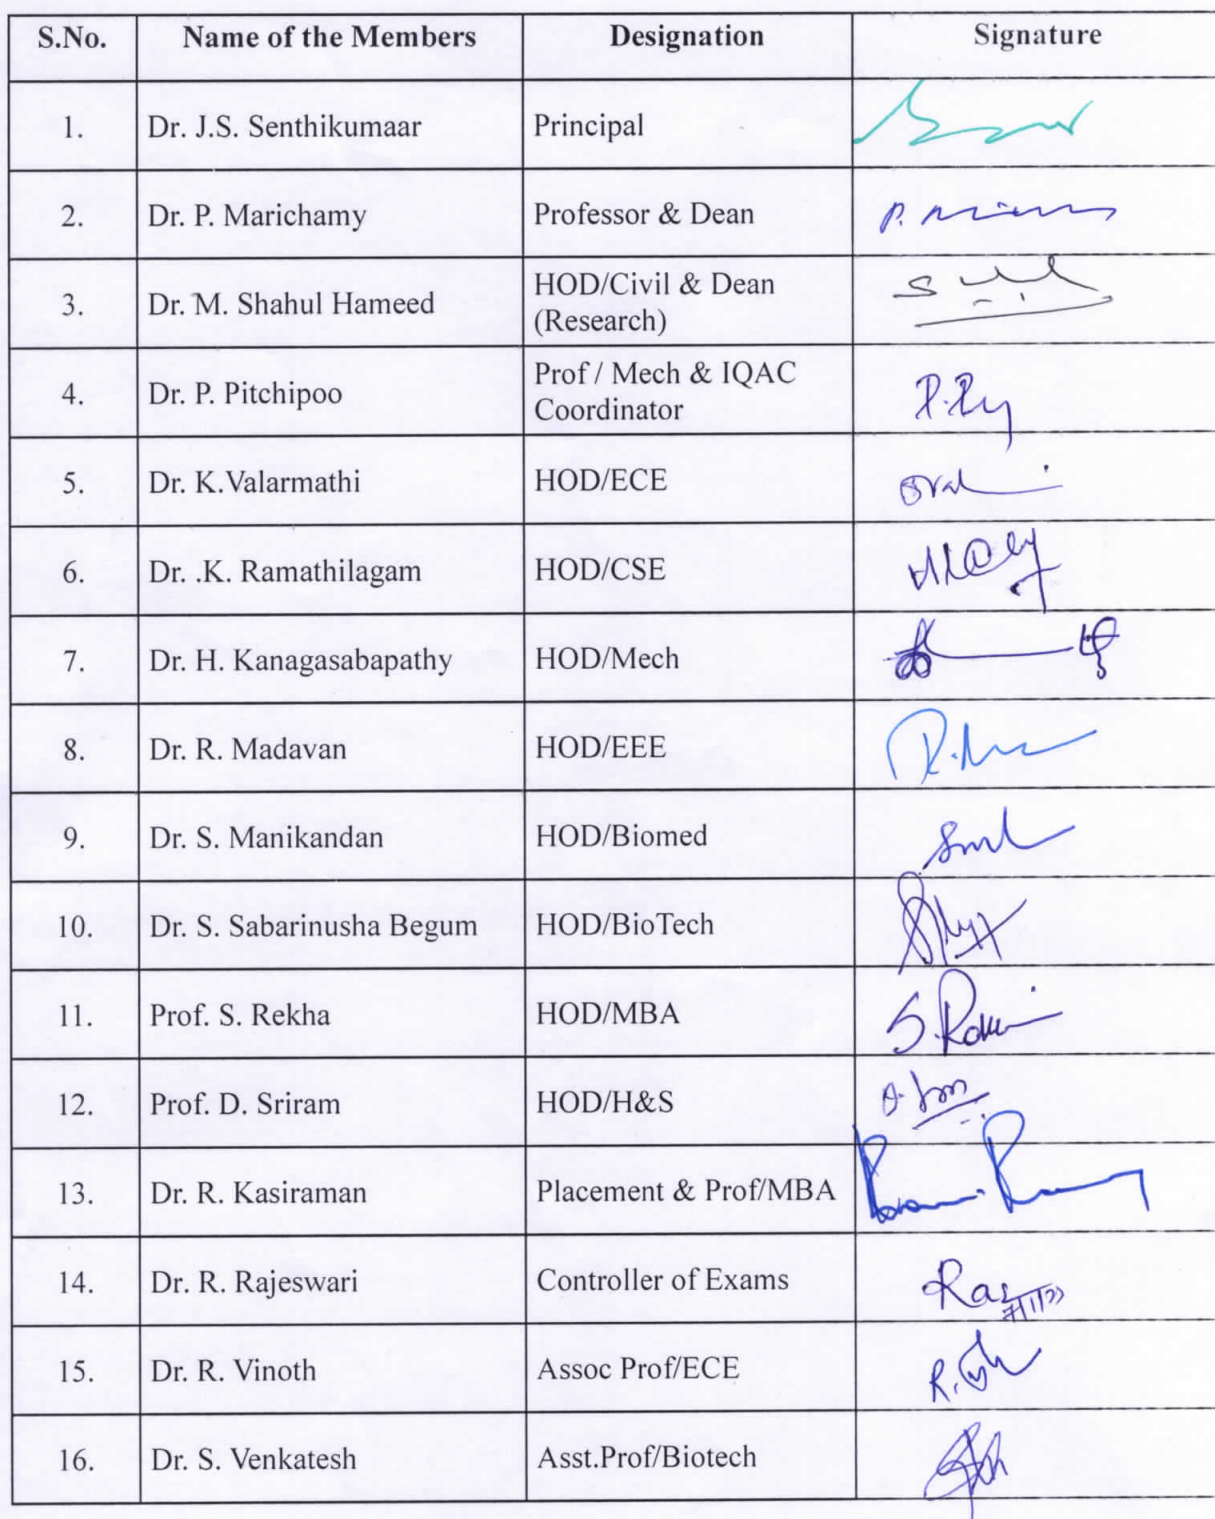 S.No. Name of the Members Designation Signature
1. Dr. J.S. Senthikumaar Principal
2. Dr. P. Marichamy Professor & Dean
3. Dr. M. Shahul Hameed HOD/Civil & Dean
(Research)
4. Dr. P. Pitchipoo Prof / Mech & IQAC
Coordinator
5. Dr. K.Valarmathi HOD/ECE
6. Dr. .K. Ramathilagam HOD/CSE
7. Dr. H. Kanagasabapathy HOD/Mech
8. Dr. R. Madavan HOD/EEE
9. Dr. S. Manikandan HOD/Biomed
10. Dr. S. Sabarinusha Begum HOD/BioTech
11. Prof. S. Rekha HOD/MBA
12. Prof. D. Sriram HOD/H&S
13. Dr. R. Kasiraman Placement & Prof/MBA
14. Dr. R. Rajeswari Controller of Exams
15. Dr. R. Vinoth Assoc Prof/ECE
16. Dr. S. Venkatesh Asst.Prof/Biotech